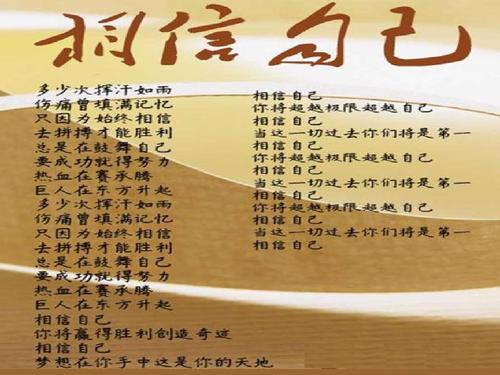 相信自己
多少次挥汗如雨
伤痛曾填满记忆
只因为始终相信
去拼搏才能胜利
总是在鼓舞自己
要成功就得努力
热血在赛承腾
巨人在东方升起
多少次挥汗如雨
伤痛曾填满记忆
只因为始终相信
去拼搏才能胜利
总是在鼓舞自己
要成功就得努力
热血在赛承腾
巨人在东方升起
相信自己
你将赢得胜利创造奇迹
相信自己
梦想在你手中这是你的天地
相信自己
你将超越极限超越自己
相信自己
当这一切过去你们将是第一
相信自己
你将超越极限超越自己
相信自己
当这一切过去你们将是第一
相信自己
你将超越极限超越自己
相信自己
当这一切过去你们将是第一
相信自己